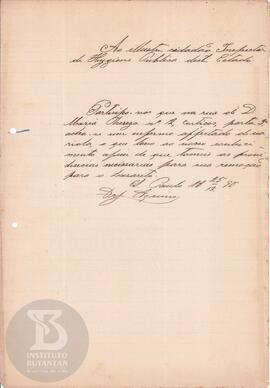 Ao Illustre cidadão, Inspector
de Hygiene Publica deste Estado
Participo-vos que na rua de D.
Maria Thereza nº 2, cortiço, porta 3
acha-se um enfermo affectado de va-
riola, o que levo ao vosso conheci-
mento afim de que tomeis as provi-
dencias necessarias para sua remoção
para o Lazareto.
S. Paulo 25/12 90
INSTITUTO
BUTANTAN
A serviço da vida